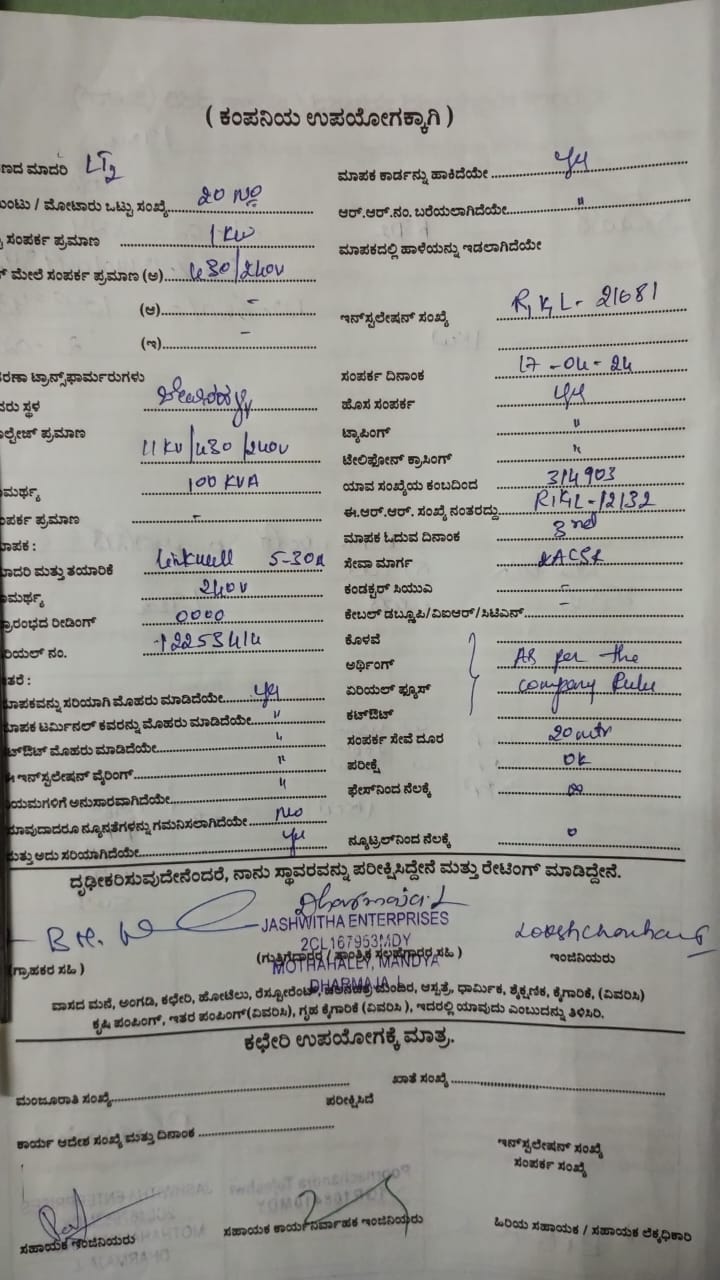 ( ಕಂಪನಿಯ ಉಪಯೋಗಕ್ಕಾಗಿ )
ಣದ ಮಾದರಿ LT2
ಂಟು / ಮೋಟಾರು ಒಟ್ಟು ಸಂಖ್ಯೆ 20 No
ಸಂಪರ್ಕ ಪ್ರಮಾಣ 1 KW
ಮೇಲೆ ಸಂಪರ್ಕ ಪ್ರಮಾಣ (ಅ) 430/240V
(ಆ) -
(ಇ) -
ರಣಾ ಟ್ರಾನ್ಸ್‌ಫಾರ್ಮರುಗಳು
ಸರು ಸ್ಥಳ
ಾಲ್ಟೇಜ್ ಪ್ರಮಾಣ 11 KV/430/240V
ಮರ್ಥ್ಯ 100 KVA
ಂಪರ್ಕ ಪ್ರಮಾಣ -
ಮಾಪಕ :
ಾದರಿ ಮತ್ತು ತಯಾರಿಕೆ Linkwell 5-30A
ಾಮರ್ಥ್ಯ 240V
ಪ್ರಾರಂಭದ ರೀಡಿಂಗ್ 0000
ರಿಯಲ್ ನಂ.
ತರೆ :
ಮಾಪಕವನ್ನು ಸರಿಯಾಗಿ ಮೊಹರು ಮಾಡಿದೆಯೇ yes
ಮಾಪಕ ಟರ್ಮಿನಲ್ ಕವರನ್ನು ಮೊಹರು ಮಾಡಿದೆಯೇ "
ಕಟ್‌ಔಟ್ ಮೊಹರು ಮಾಡಿದೆಯೇ "
ಇನ್‌ಸ್ಟಲೇಷನ್ ವೈರಿಂಗ್ "
ಯಮಗಳಿಗೆ ಅನುಸಾರವಾಗಿದೆಯೇ "
ಯಾವುದಾದರೂ ನ್ಯೂನ್ಯತೆಗಳನ್ನು ಗಮನಿಸಲಾಗಿದೆಯೇ No
ಮತ್ತು ಅದು ಸರಿಯಾಗಿದೆಯೇ yes
ಮಾಪಕ ಕಾರ್ಡನ್ನು ಹಾಕಿದೆಯೇ yes
ಆರ್.ಆರ್.ನಂ. ಬರೆಯಲಾಗಿದೆಯೇ "
ಮಾಪಕದಲ್ಲಿ ಹಾಳೆಯನ್ನು ಇಡಲಾಗಿದೆಯೇ
ಇನ್‌ಸ್ಟಲೇಷನ್ ಸಂಖ್ಯೆ
ಸಂಪರ್ಕ ದಿನಾಂಕ 17-04-24
ಹೊಸ ಸಂಪರ್ಕ yes
ಟ್ಯಾಪಿಂಗ್ "
ಟೇಲಿಫೋನ್ ಕ್ರಾಸಿಂಗ್ "
ಯಾವ ಸಂಖ್ಯೆಯ ಕಂಬದಿಂದ 314903
ಈ.ಆರ್.ಆರ್. ಸಂಖ್ಯೆ ನಂತರದ್ದು
ಮಾಪಕ ಓದುವ ದಿನಾಂಕ 3rd
ಸೇವಾ ಮಾರ್ಗ
ಕಂಡಕ್ಟರ್ ಸಿಯುಎ -
ಕೇಬಲ್ ಡಬ್ಲ್ಯೂಪಿ/ವಿಐಆರ್/ಸಿಟಿಎನ್ -
ಕೊಳವೆ
ಅರ್ಥಿಂಗ್ As per the
ಏರಿಯಲ್ ಫ್ಯೂಸ್ company Rules
ಕಟ್‌ಔಟ್
ಸಂಪರ್ಕ ಸೇವೆ ದೂರ 20 mtr
ಪರೀಕ್ಷೆ OK
ಫೇಸ್‌ನಿಂದ ನೆಲಕ್ಕೆ ∞
ನ್ಯೂಟ್ರಲ್‌ನಿಂದ ನೆಲಕ್ಕೆ 0
ದೃಢೀಕರಿಸುವುದೇನೆಂದರೆ, ನಾನು ಸ್ಥಾವರವನ್ನು ಪರೀಕ್ಷಿಸಿದ್ದೇನೆ ಮತ್ತು ರೇಟಿಂಗ್ ಮಾಡಿದ್ದೇನೆ.
Dharmaja.L
JASHWITHA ENTERPRISES
2CL167953MDY
(ಗ್ರಾಹಕರ ಸಹಿ )
(ಗುತ್ತಿಗೆದಾರರ / ತಾಂತ್ರಿಕ ಸಲಹೆಗಾರರ ಸಹಿ )
ಇಂಜಿನಿಯರು
MOTHAHALLY, MANDYA
DHARMAJA. L
ವಾಸದ ಮನೆ, ಅಂಗಡಿ, ಕಛೇರಿ, ಹೋಟೆಲು, ರೆಸ್ಟೋರೆಂಟ್, ಮಂದಿರ, ಆಸ್ಪತ್ರೆ, ಧಾರ್ಮಿಕ, ಶೈಕ್ಷಣಿಕ, ಕೈಗಾರಿಕೆ, (ವಿವರಿಸಿ)
ಕೃಷಿ ಪಂಪಿಂಗ್, ಇತರ ಪಂಪಿಂಗ್(ವಿವರಿಸಿ), ಗೃಹ ಕೈಗಾರಿಕೆ (ವಿವರಿಸಿ ), ಇದರಲ್ಲಿ ಯಾವುದು ಎಂಬುದನ್ನು ತಿಳಿಸಿರಿ.
ಕಛೇರಿ ಉಪಯೋಗಕ್ಕೆ ಮಾತ್ರ.
ಮಂಜೂರಾತಿ ಸಂಖ್ಯೆ
ಖಾತೆ ಸಂಖ್ಯೆ
ಪರೀಕ್ಷಿಸಿದೆ
ಕಾರ್ಯ ಆದೇಶ ಸಂಖ್ಯೆ ಮತ್ತು ದಿನಾಂಕ
ಇನ್‌ಸ್ಟಲೇಷನ್ ಸಂಖ್ಯೆ
ಸಂಪರ್ಕ ಸಂಖ್ಯೆ
ಸಹಾಯಕ ಇಂಜಿನಿಯರು
ಸಹಾಯಕ ಕಾರ್ಯನಿರ್ವಾಹಕ ಇಂಜಿನಿಯರು
ಹಿರಿಯ ಸಹಾಯಕ / ಸಹಾಯಕ ಲೆಕ್ಕಧಿಕಾರಿ